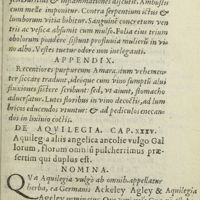 & inflammationes adiuuat. Ambustis
cum melle imponitur. Contra serpentium ictus &
lumborum vitia bibitur. Sanguinē concretum ven
tris ac vesicæ absumit cum mulso. Folia eius trium
obolorum pondere sistunt profluuia mulierū in vi
no albo. Vestes tuetur odore non inelegánti.
APPENDIX.
Recentiores purpuream Amarā, atum vehementer
ter siccare tradunt, ideoque cum vino sumptū aluū
fluxiones sanguinis sistere: sed, vt aiunt, stomacho
aduersatur. Lutei floribus in vino decoctis, ad lum
bricos educendos vtuntur: & ad pediculos enecan-
dos in lixiuio coctis.
DE AQVILEGIA. CAP. XXXV.
Aquileg a aliis angelica ancolie vulgo Gal
lorum, florum omniū pulcherrimus præ
sertim qui duplus est.
NOMINA.
QVæ Aquilegia vulgò ab omnib. appellatur
herba, ea Germanis Ackeley Agley & Aquilegia